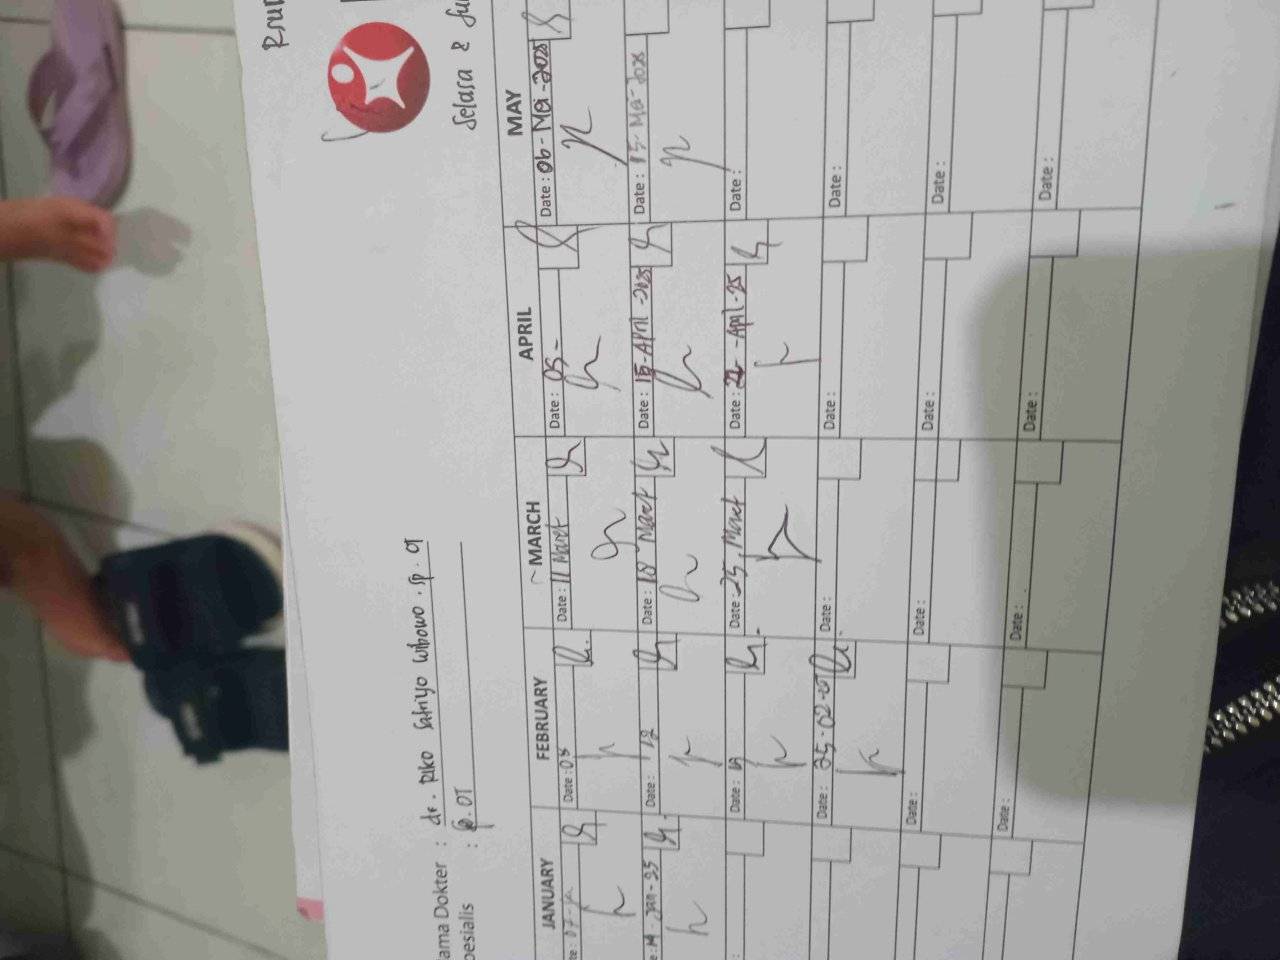 Selasa &
ama Dokter : dr. Riko Satriyo Wibowo . sp. OT
pesialis : Sp.OT
JANUARY FEBRUARY MARCH APRIL MAY
te : 07- Date : 04 Date : 11 Maret Date : 05- Date : 06-Mei-2025
e : 14 - Jan-25 Date : Date : 18 Maret Date : 15-April-2025 Date : 15-Mei-2025
: Date : Date : 25, Maret Date : 22-April-25 Date :
: Date : 25-02- Date : Date : Date :
Date : Date : Date : Date :
Date : Date : Date : Date :